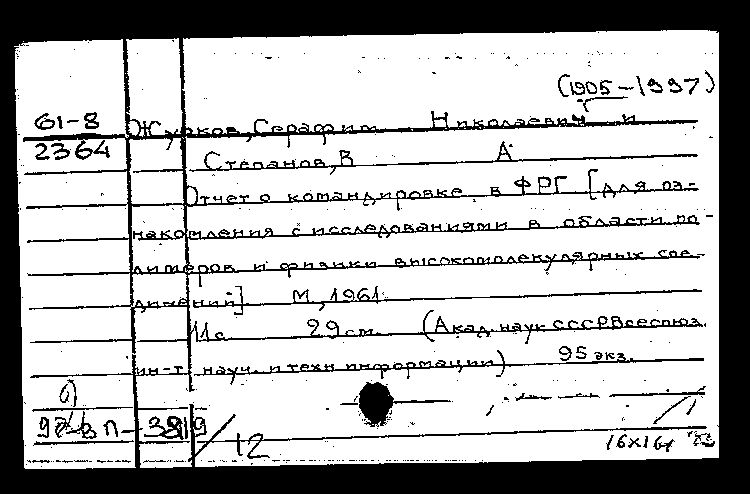 (1905-1997)
61-8 Журков, Серафим Николаевич и
2364
Степанов, В А
Отчет о командировке в ФРГ [для оз-
накомления с исследованиями в области по-
лимеров и физики высокомолекулярных сое-
динений] М., 1961.
11с. 29 см. (Акад. наук СССР Всесоюз.
ин-т науч. и техн информации) 95 экз.
п-3819/12
16х16